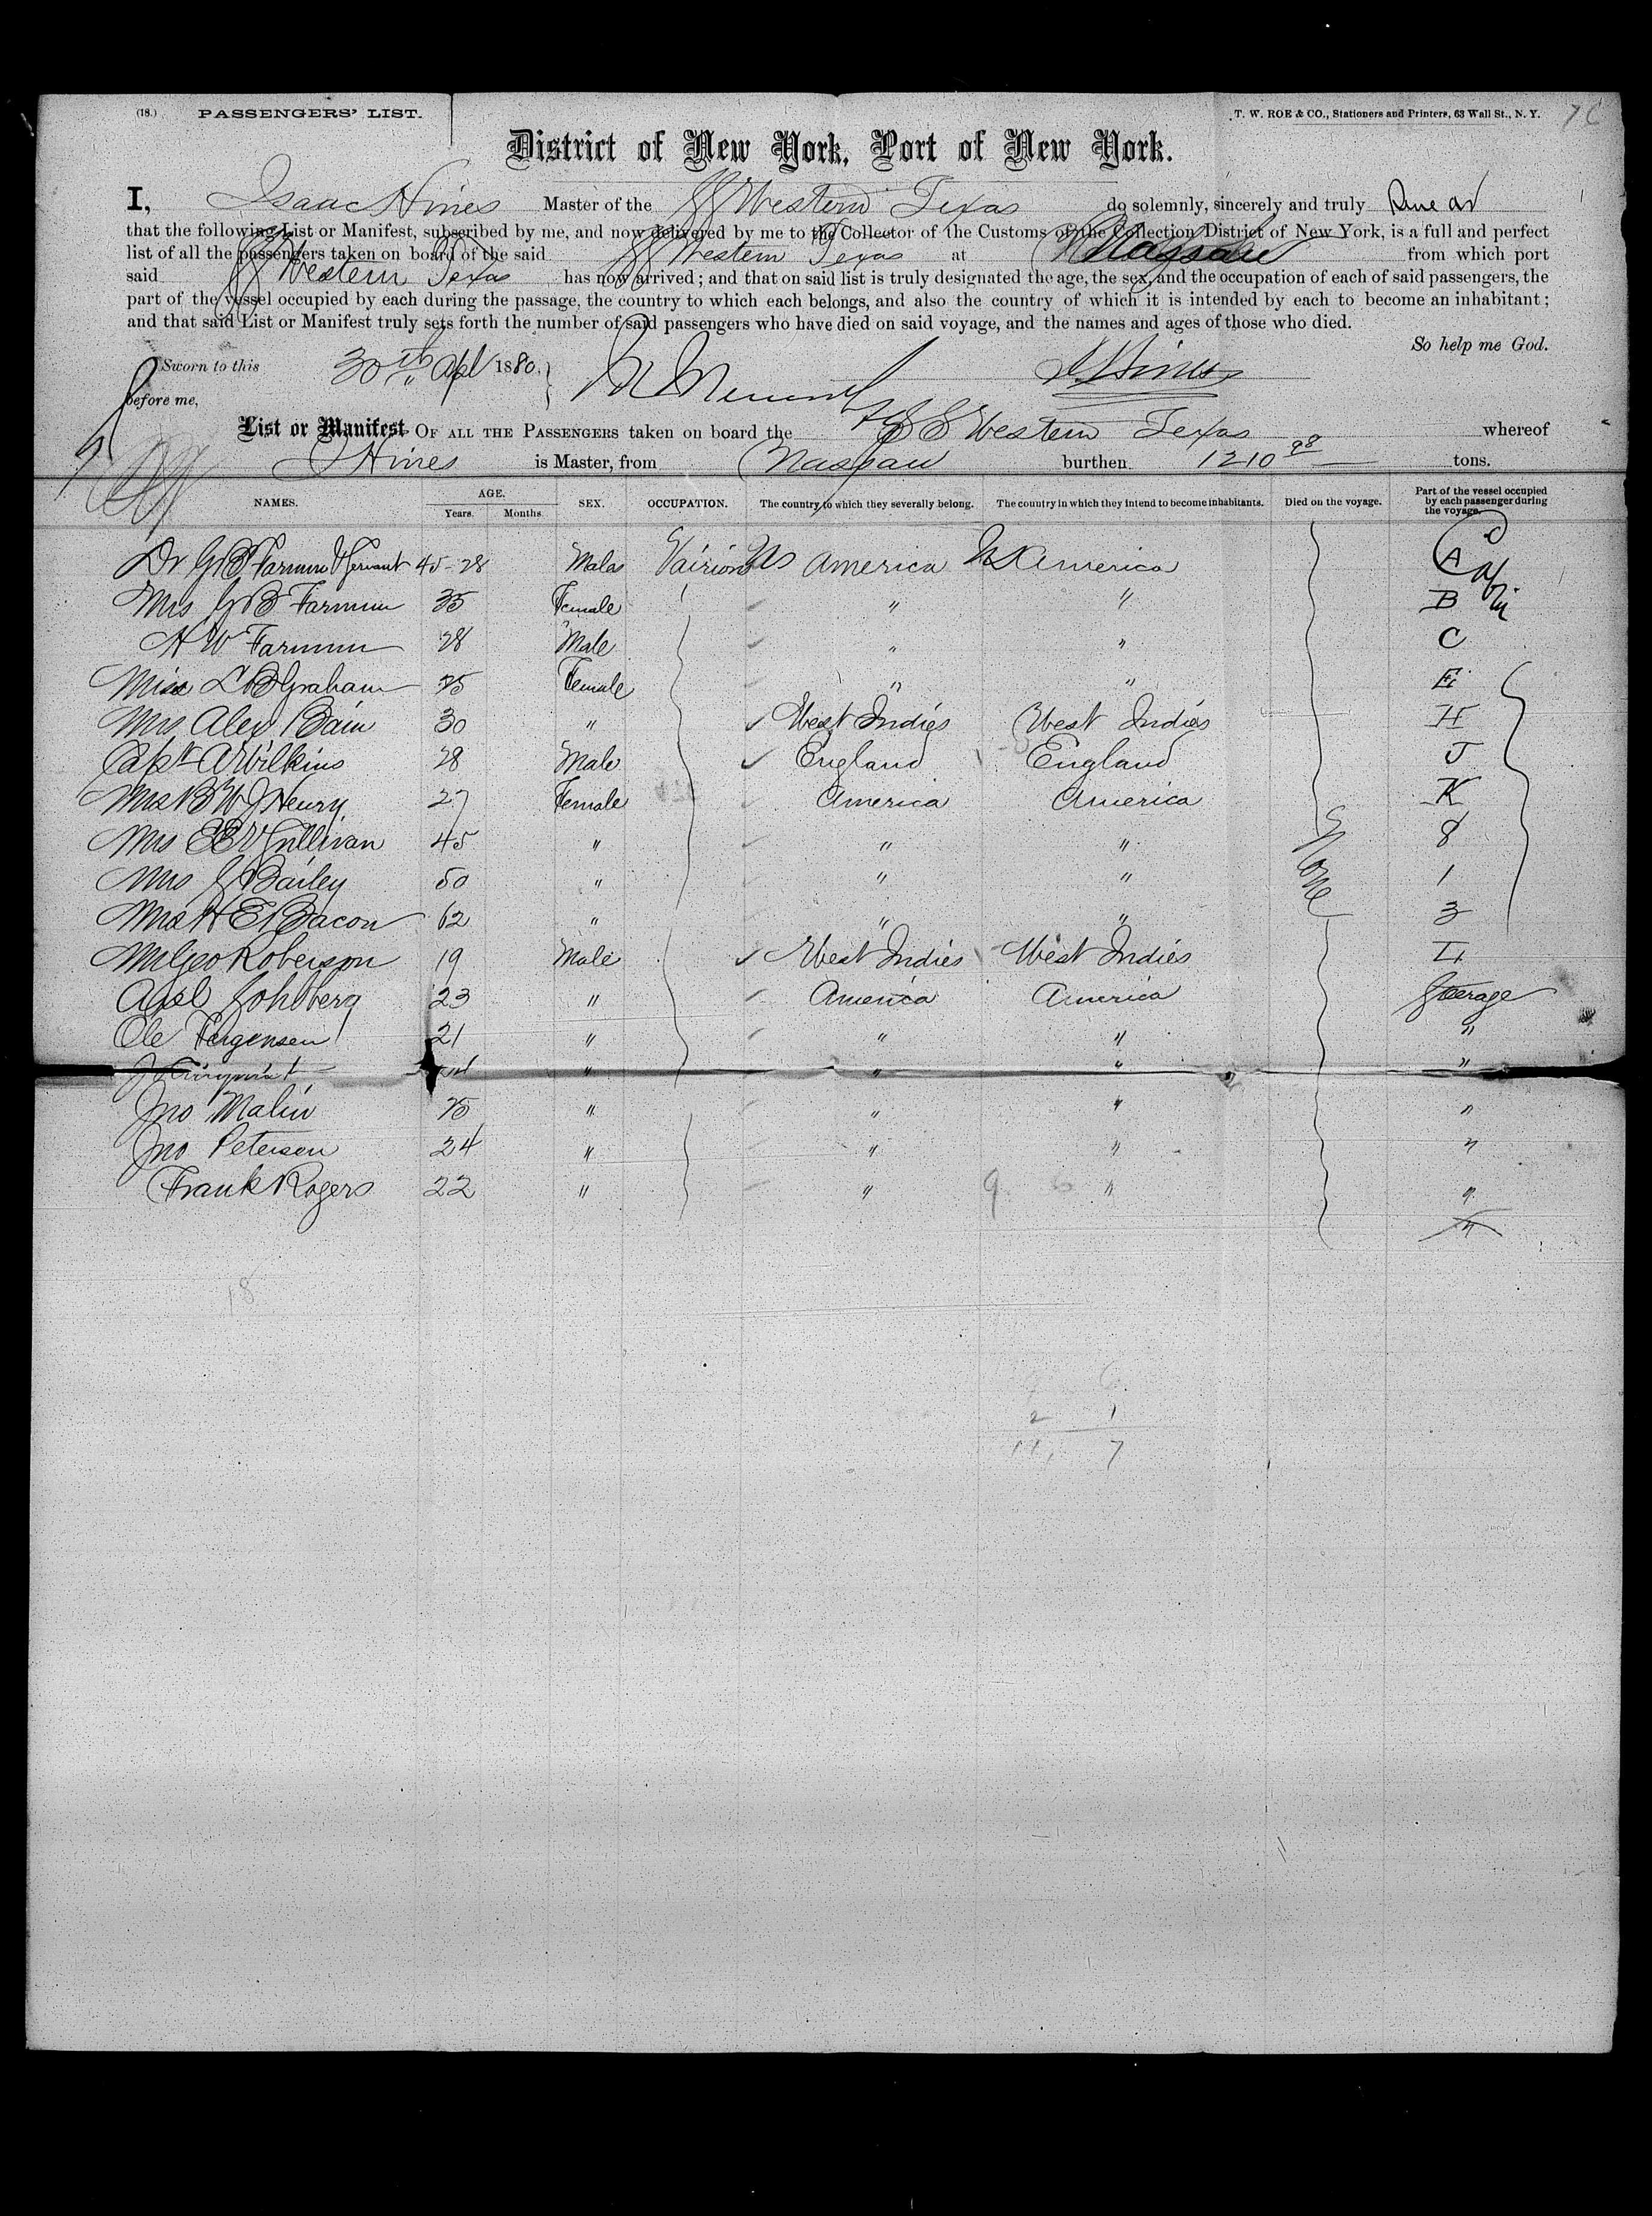 (18.) PASSENGERS' LIST. T. W. ROE & CO., Stationers and Printers, 63 Wall St., N. Y.
District of New York, Port of New York.
I, Isaac Hines Master of the SS Western Texas do solemnly, sincerely and truly
that the following List or Manifest, subscribed by me, and now delivered by me to the Collector of the Customs of the Collection District of New York, is a full and perfect
list of all the passengers taken on board of the said SS Western Texas at Nassau from which port
said SS Western Texas has now arrived; and that on said list is truly designated the age, the sex, and the occupation of each of said passengers, the
part of the vessel occupied by each during the passage, the country to which each belongs, and also the country of which it is intended by each to become an inhabitant;
and that said List or Manifest truly sets forth the number of said passengers who have died on said voyage, and the names and ages of those who died.
So help me God.
Sworn to this 30th Apl 1880. I Hines
before me,
List or Manifest OF ALL THE PASSENGERS taken on board the SS Western Texas whereof
I Hines is Master, from Nassau burthen 1210 98 tons.
NAMES. AGE. Years. Months. SEX. OCCUPATION. The country to which they severally belong. The country in which they intend to become inhabitants. Died on the voyage. Part of the vessel occupied by each passenger during the voyage.
Dr G B Farmum & Servant 45-28 Males US America US America A
Mrs G B Farmum 35 Female " " B
H W Farmum 28 Male " " C
Miss L B Graham 25 Female " " E
Mrs Alex Bain 30 " West Indies West Indies H
Capt A Wilkins 28 Male England England J
Mrs B W J Henry 27 Female America America K
Mrs E E Sullivan 45 " " " 8
Mrs J Bailey 50 " " " 1
Mrs H E Bacon 62 " " " None 3
Mr Geo Roberson 19 Male West Indies West Indies
Axel Sohlberg 23 " America America Steerage
Ole Fergensen 21 " " " "
" " " "
Jno Malin 25 " " " "
Jno Petersen 24 " " " "
Frank Rogers 22 " " " "
18
2 1
11 7